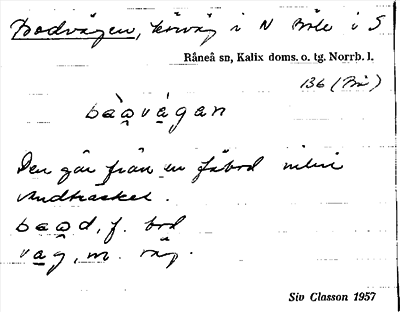 Bodvägen, körväg i N Böle i S
Råneå sn, Kalix doms. o. tg. Norrb. l.
136 (Bö)
bὰa̯vágan
Den går från en fäbod intill
Andträsket.
baad, f. bod
vag, m. väg.
Siv Classon 1957